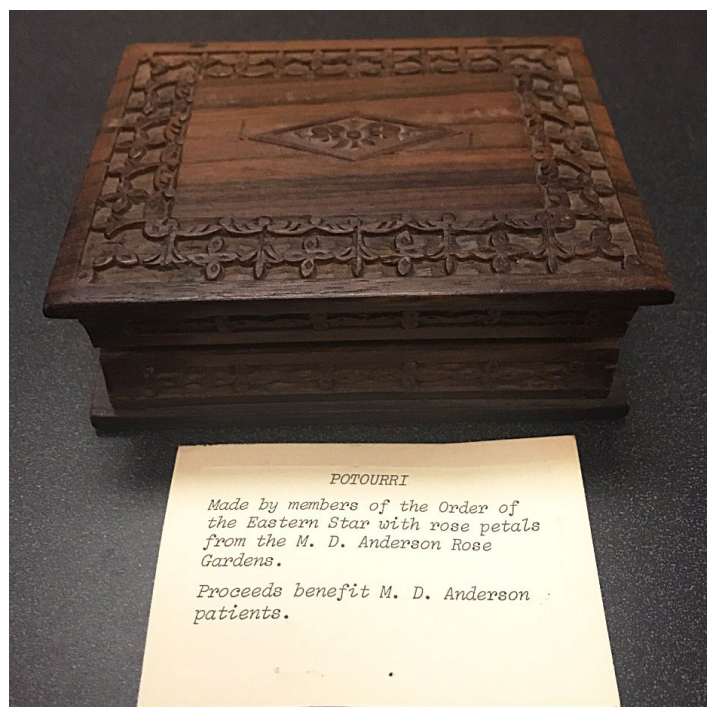 POTOURRI
Made by members of the Order of
the Eastern Star with rose petals
from the M. D. Anderson Rose
Gardens.
Proceeds benefit M. D. Anderson
patients.